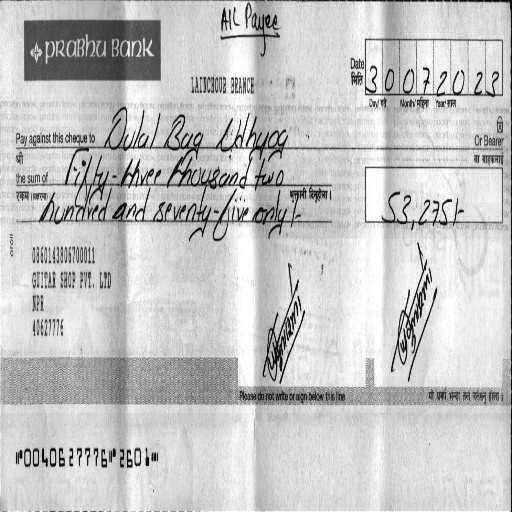 A/C Payee
PRABHU BANK
LAINCHOUR BRANCH
Date
मिति
30072023
Day/ गते Month/ महिना Year/ साल
Pay against this cheque to Dulal Bag Udhyog Or Bearer
श्री वा वाहकलाई
the sum of Fifty-three thousand two
रकम (अक्षरमा) भुक्तानी दिनुहोला ।
hundred and seventy-five only/-
53,275/-
0860143806700011
GUITAR SHOP PVT. LTD
NPR
40627776
Please do not write or sign below this line
⑈0040627776⑈2601⑈